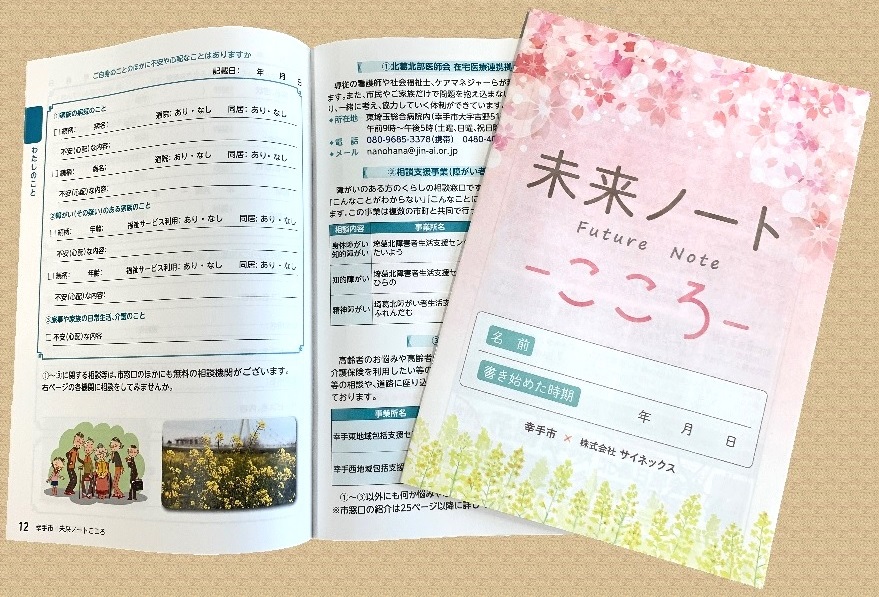 ご自身のことのほかに不安や心配なことはありますか
記載日： 年 月 日
わたしのこと
病名： 通院：あり・なし 同居：あり・なし
不安(心配)な内容：
病名： 通院：あり・なし 同居：あり・なし
不安(心配)な内容：
②障がい(その疑い)のある家族のこと
続柄： 年齢： 福祉サービス利用：あり・なし 同居：あり・なし
不安(心配)な内容：
続柄： 年齢： 福祉サービス利用：あり・なし 同居：あり・なし
不安(心配)な内容：
③家事や家族の日常生活、介護のこと
不安(心配)な内容
①～③に関する相談等は、市窓口のほかにも無料の相談機関がございます。
右ページの各機関に相談をしてみませんか。
12 幸手市 未来ノートこころ
①北葛北部医師会 在宅医療連携拠
専従の看護師や社会福祉士、ケアマネジャーらが
ます。また、市民やご家族だけで問題を抱え込まな
り、一緒に考え、協力していく体制ができています。
所在地 東埼玉総合病院内(幸手市大字吉野51
午前9時～午後5時(土曜、日曜、祝日
電話 080-9685-3378(携帯) 0480-4
メール nanohana@jin-ai.or.jp
②相談支援事業(障がい者
障がいのある方のくらしの相談窓口です
「こんなことがわからない」「こんなことに
ます。この事業は複数の市町と共同で行
相談内容 事業所名
身体障がい 埼葛北障害者生活支援セン
知的障がい たいよう
知的障がい 埼葛北障害者生活支援セ
ひらの
精神障がい 埼葛北障がい者生活支
ふれんだむ
③
高齢者のお悩みや高齢者
介護保険を利用したい等の
等の相談や、道路に座り込
ております。
事業所名
幸手東地域包括支援セ
幸手西地域包括支援セ
①～③以外にも何か悩みや
※市窓口の紹介は25ページ以降に詳し
未来ノート
Future Note
-こころ-
名前
書き始めた時期
年 月 日
幸手市 × 株式会社 サイネックス